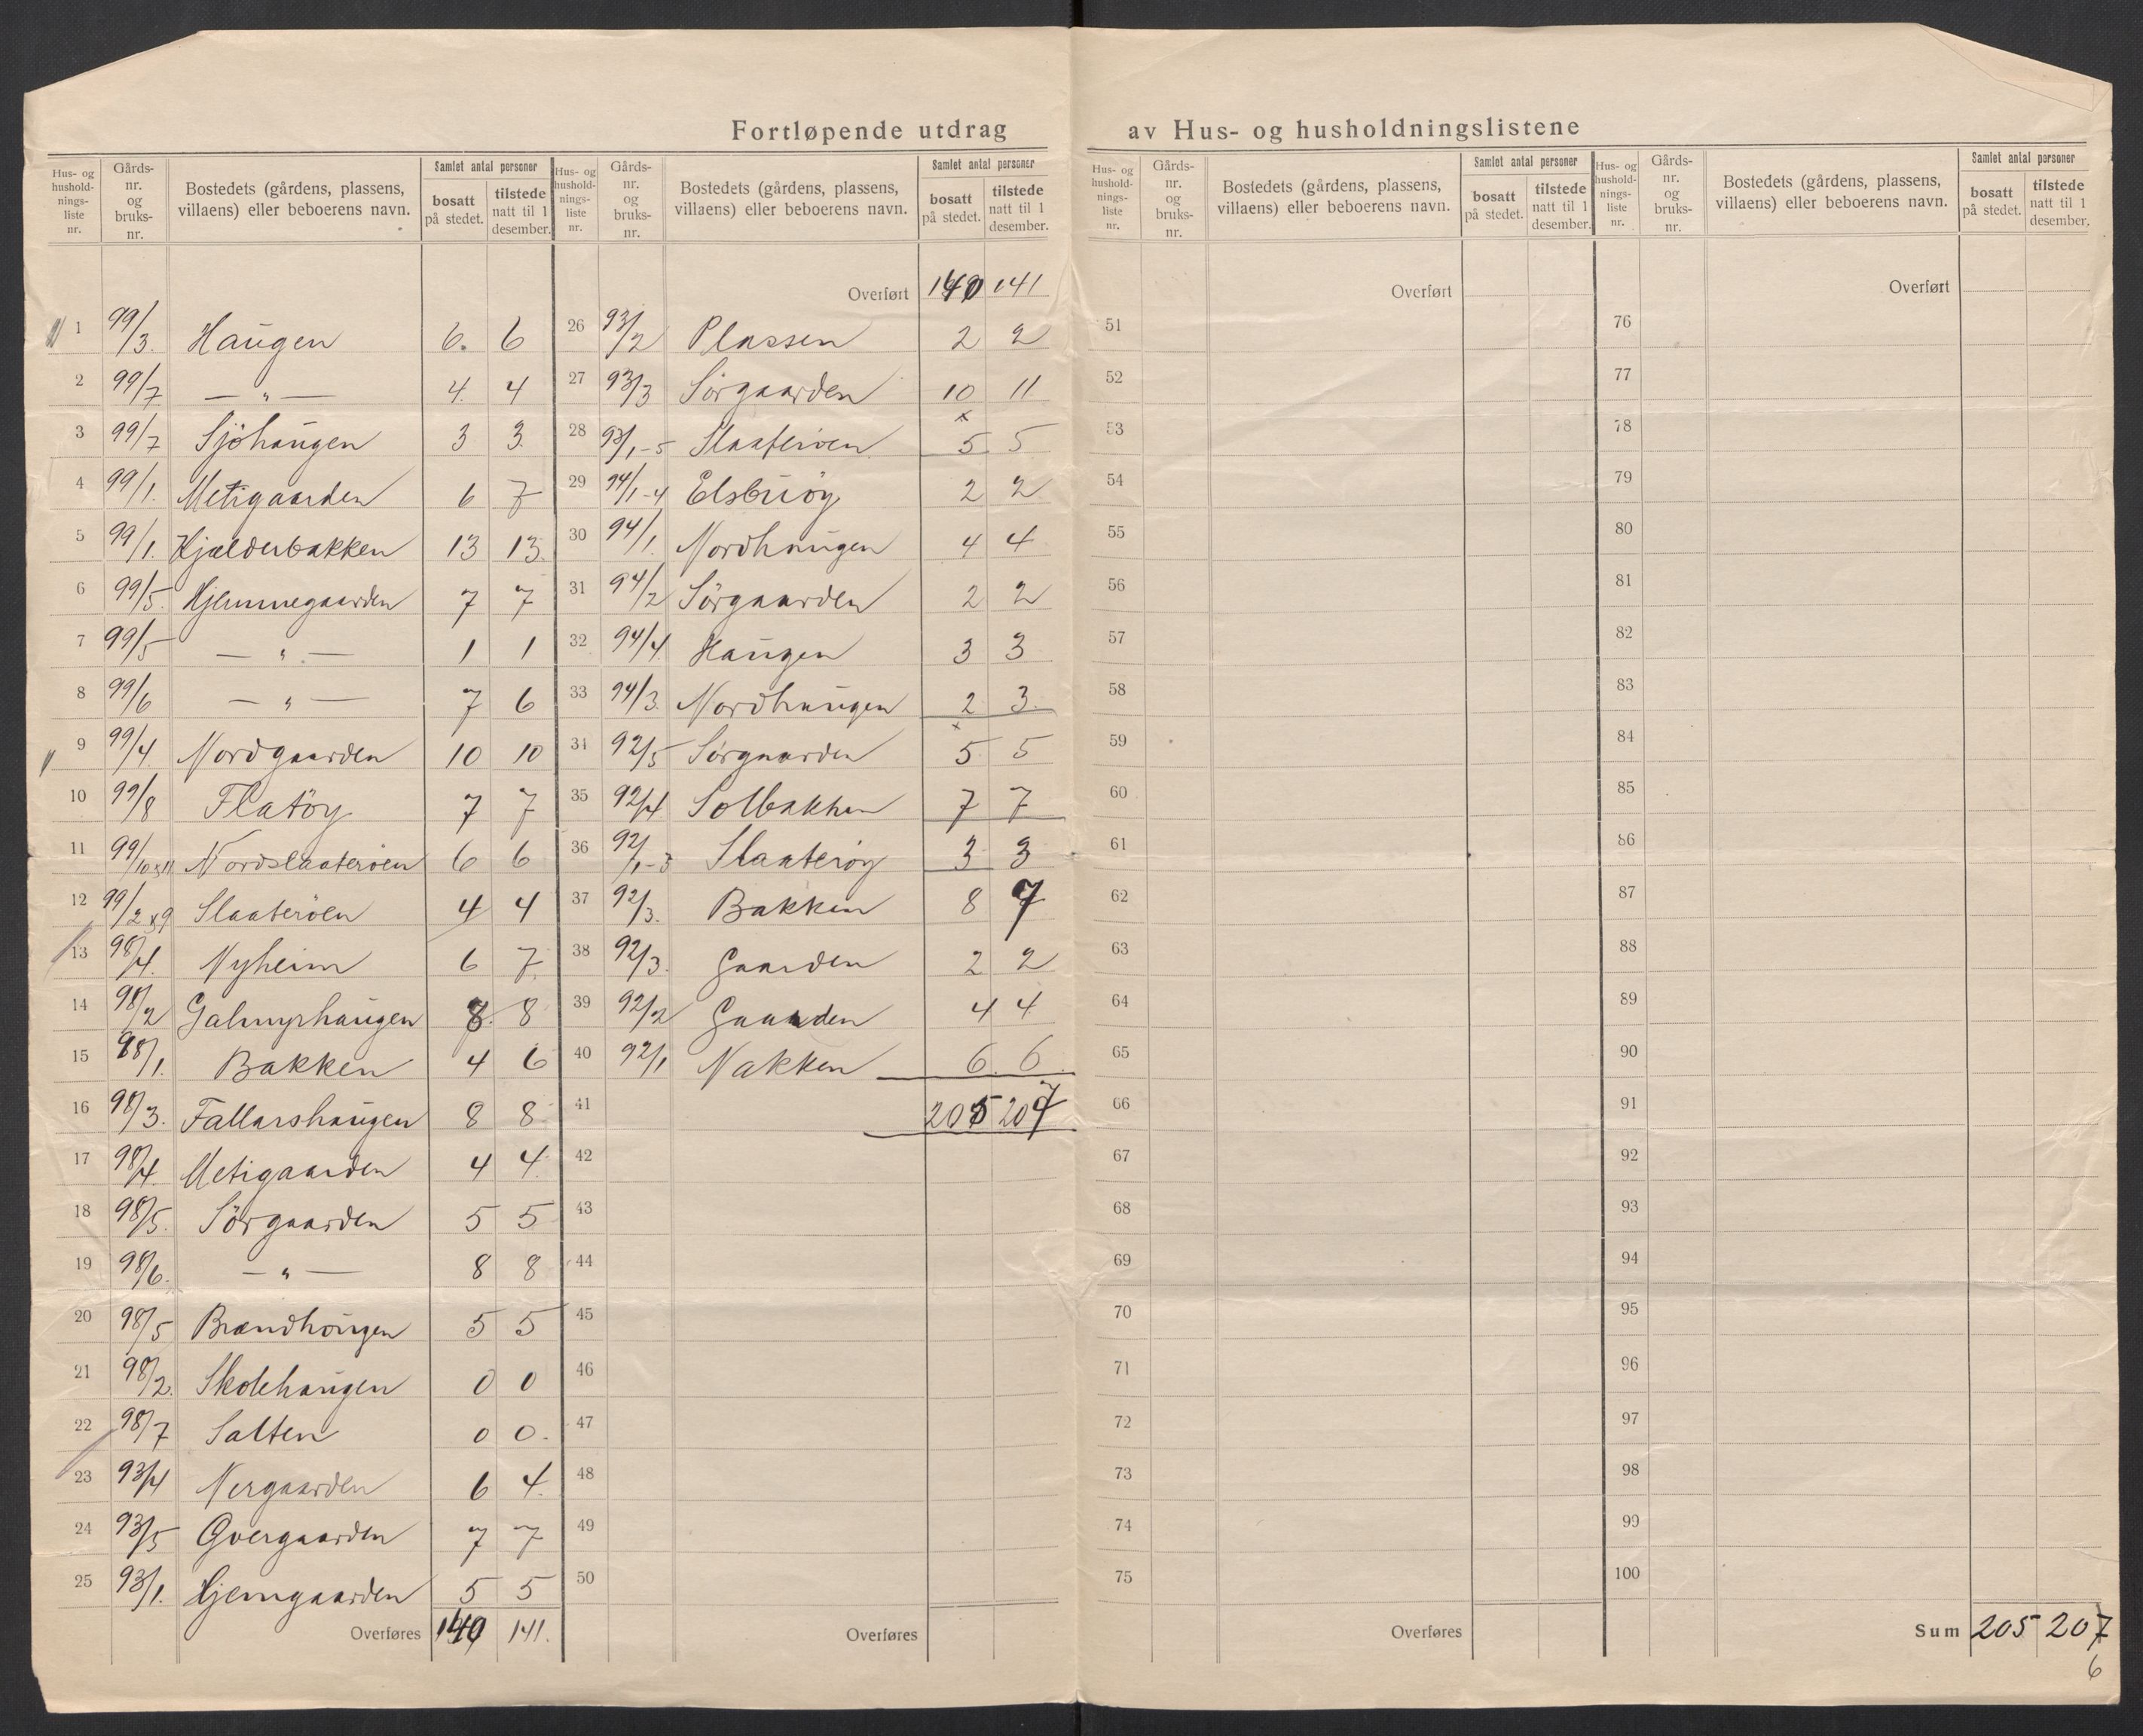 Fortløpende utdrag av Hus- og husholdningslistene
Hus- og hushold-nings-liste nr. Gårds-nr. og bruks-nr. Bostedets (gårdens, plassens, villaens) eller beboerens navn. Samlet antal personer bosatt på stedet. tilstede natt til 1 desember.
1 99/3. Haugen 6. 6
2 99/7 — " — 4 4
3 99/7 Sjöhaugen 3 3
4 99/1. Metigaarden 6 7
5 99/1. Hjælderbakken 13 13
6 99/5. Hjemmegaarden 7 7
7 99/5 — " — 1 1
8 99/6 — " — 7 6
9 99/4 Nordgaarden 10 10
10 99/8 Flatöy 7 7
11 99/10 & 11 Nordslaateröen 6 6
12 99/2 & 9 Slaateröen 4 4
13 98/4. Nyheim 6 7
14 98/2 Galmyrhaugen 8 8
15 98/1. Bakken 4 6
16 98/3. Fallarshaugen 8 8
17 98/4. Metigaarden 4 4
18 98/5. Sörgaarden 5 5
19 98/6. — " — 8 8
20 98/5 Brandhaugen 5 5
21 98/2. Skolehaugen 0 0
22 98/7 Salten 0 0.
23 93/4 Nergaarden 6 4
24 93/5 Övergaarden 7 7
25 93/1. Hjemgaarden 5 5
Overføres 140 141.
Hus- og hushold-nings-liste nr. Gårds-nr. og bruks-nr. Bostedets (gårdens, plassens, villaens) eller beboerens navn. Samlet antal personer bosatt på stedet. tilstede natt til 1 desember.
Overført 140 141
26 93/2 Plassen 2 2
27 93/3 Sörgaarden 10 11
28 93/1-5 Slaateröen 5 5
29 94/1-4 Elsbuöy 2 2
30 94/1. Nordhaugen 4 4
31 94/2 Sörgaarden 2 2
32 94/4. Haugen 3 3
33 94/3. Nordhaugen 2 3.
34 92/5 Sörgaarden 5 5
35 92/4 Solbakken 7 7
36 92/1-3 Slaateröy 3 3
37 92/3. Bakken 8 7
38 92/3. Gaarden 2 2
39 92/2 Gaarden 4 4
40 92/1 Nakken 6. 6
41 205 207
42
43
44
45
46
47
48
49
50
Overføres
Hus- og hushold-nings-liste nr. Gårds-nr. og bruks-nr. Bostedets (gårdens, plassens, villaens) eller beboerens navn. Samlet antal personer bosatt på stedet. tilstede natt til 1 desember.
Overført
51
52
53
54
55
56
57
58
59
60
61
62
63
64
65
66
67
68
69
70
71
72
73
74
75
Overføres
Hus- og hushold-nings-liste nr. Gårds-nr. og bruks-nr. Bostedets (gårdens, plassens, villaens) eller beboerens navn. Samlet antal personer bosatt på stedet. tilstede natt til 1 desember.
Overført
76
77
78
79
80
81
82
83
84
85
86
87
88
89
90
91
92
93
94
95
96
97
98
99
100
Sum 205 207
6